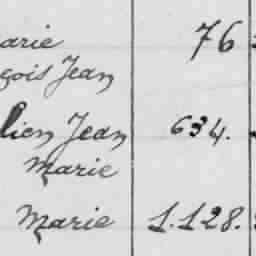 arie 76
çois Jean
lien Jean 634.
Marie
Marie 1.128.